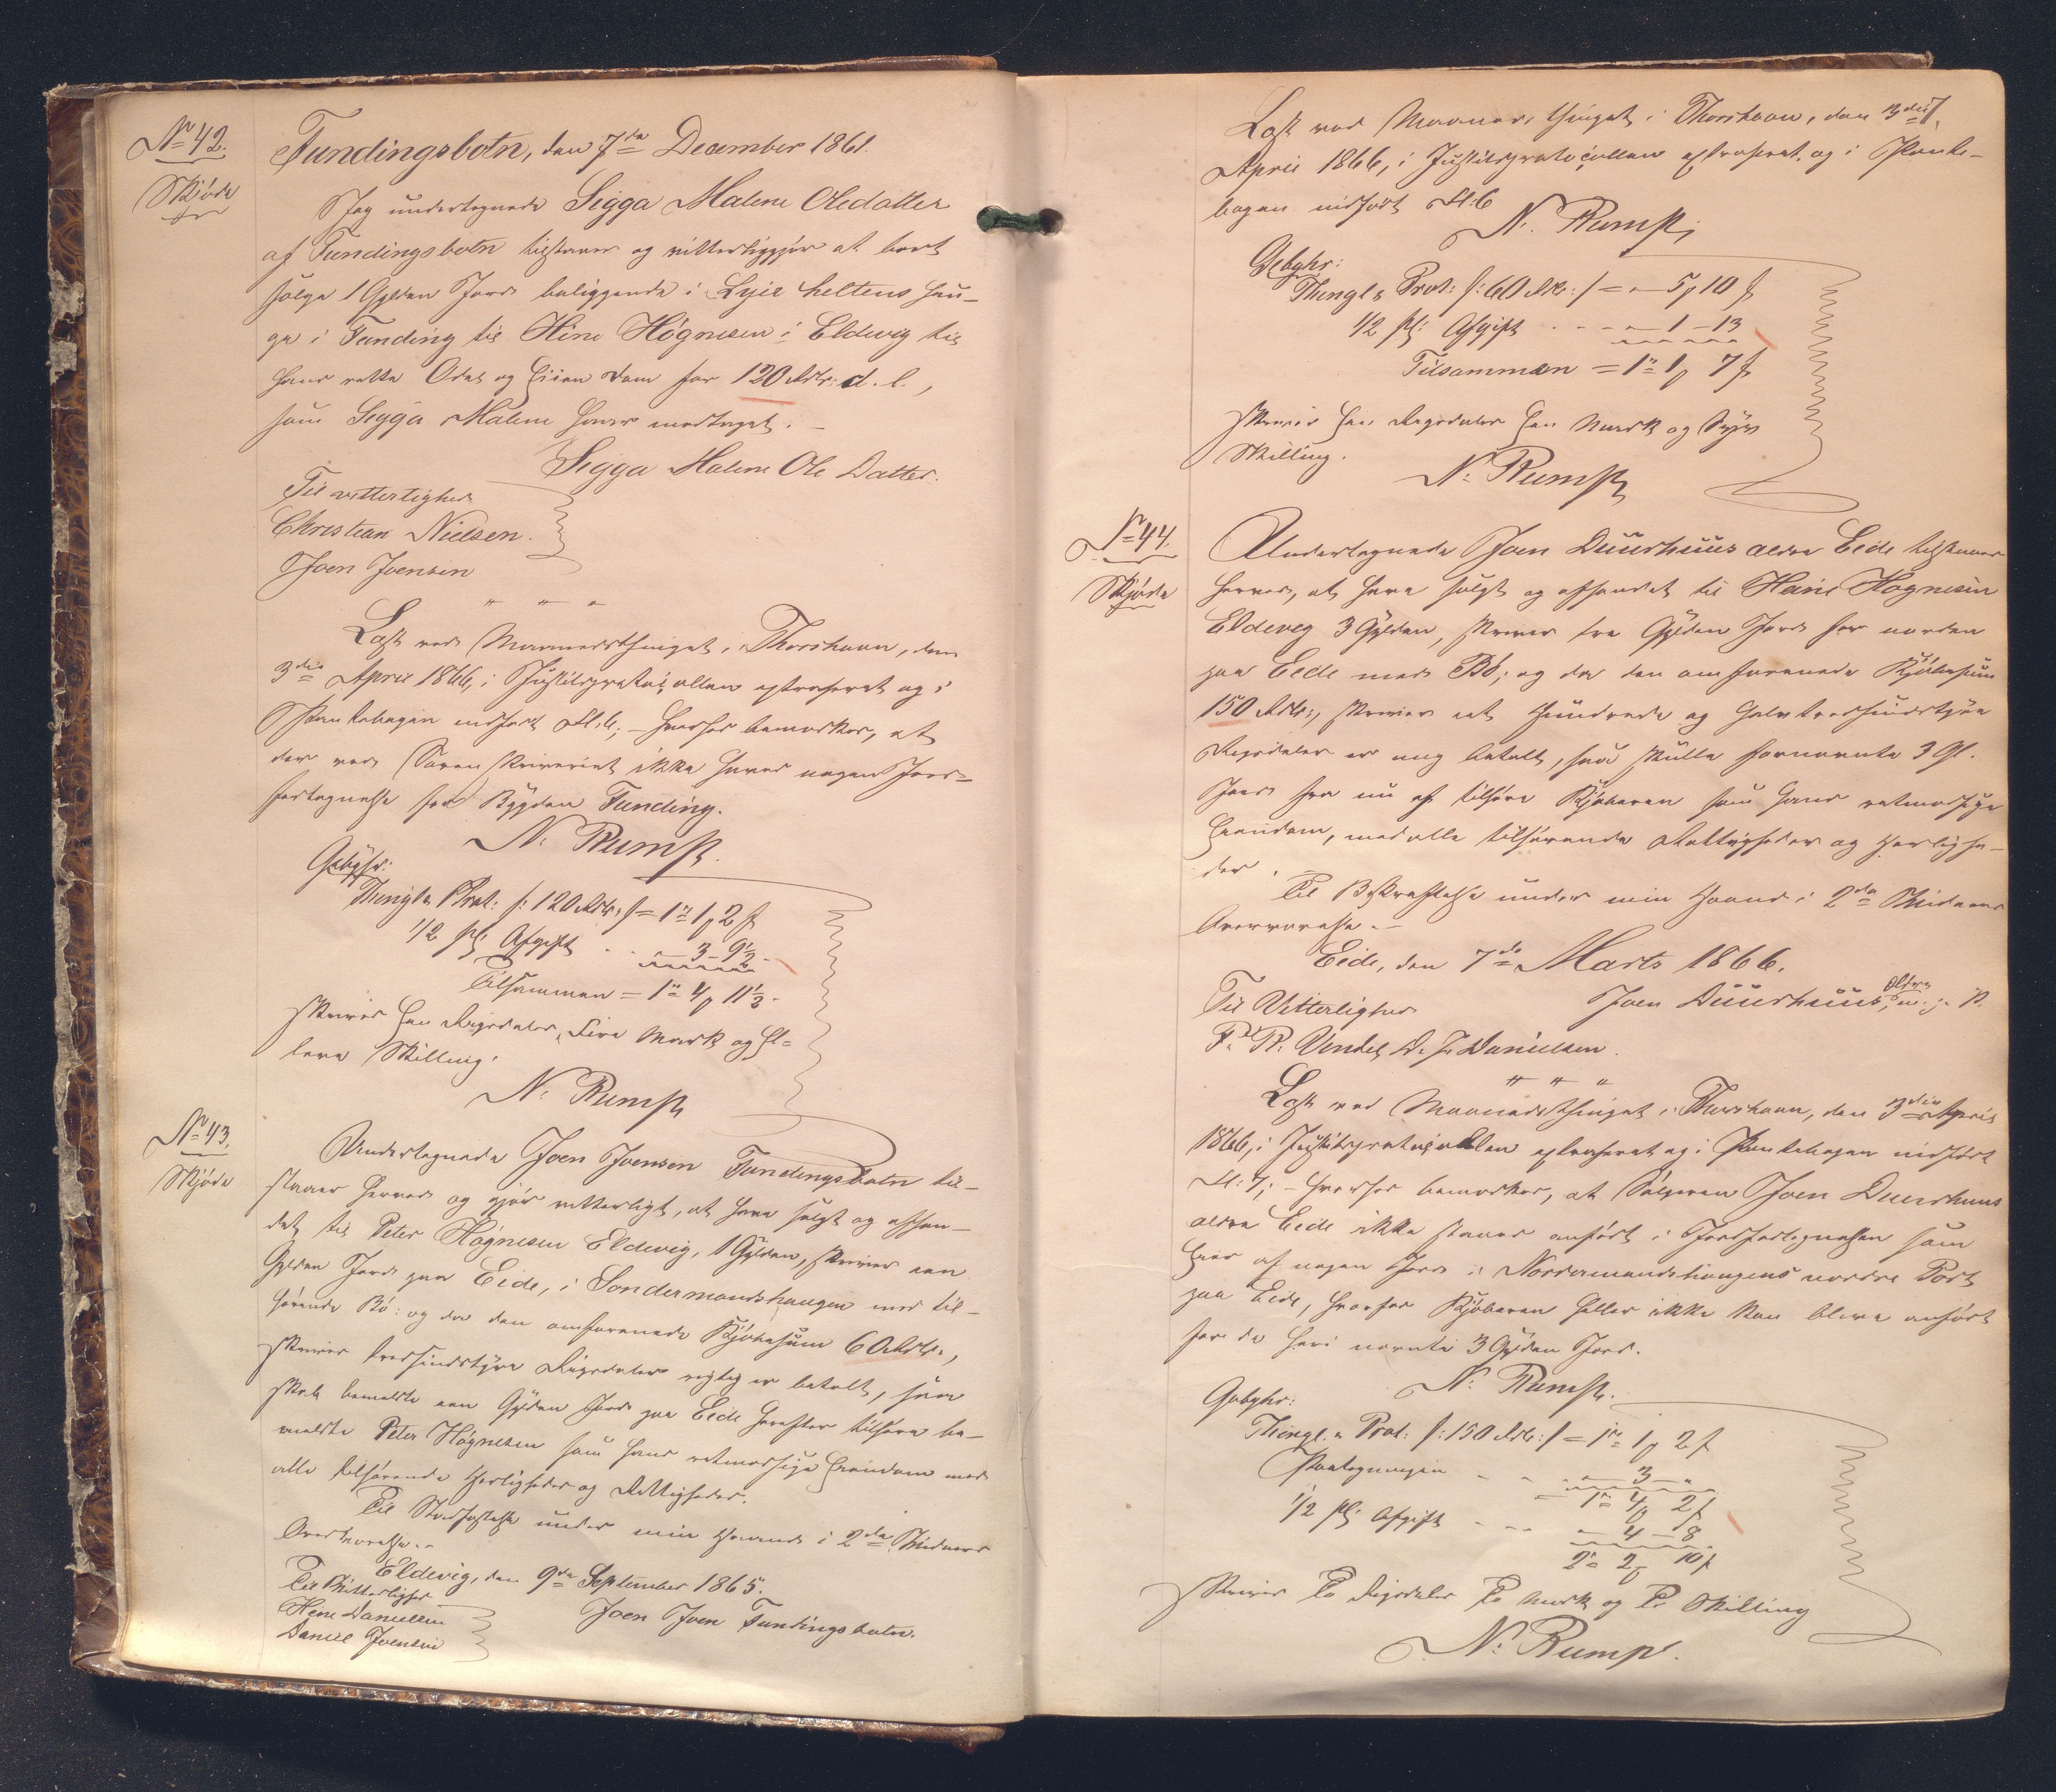 No 42.
Skjöde
Fundingsbotn, den 7de December 1861.
Jeg undertegnede Sigga Malene Oledatter
af Fundingsbotn tilstaaer og vitterliggjør at bort
sælge 1 Gylden Jord beliggende i Lyir heltens Hau-
ge i Funding til Hine Högnesen i Eldevig til
hans rette Odel og Eiendom for 120 Rdlr. d. l.,
som Sigga Malene haver modtaget. –
Sigga Malene Ole Datter.
Til vitterlighed
Christian Nielsen.
Joen Joensen
" " "
Læst ved Maanedsthinget i Thorshavn, den
3die April 1866, i Justitsprotocollen extraheret og i
Pantebogen indført Fl: 6; – hvorhos bemærkes, at
der ved Sorenskriveriet ikke haves nogen Jord-
fortegnelse for Bygden Funding.
N. Rump.
Gebyhr:
Thingl & Prot: /: 120 Rdlr :/ = 1 rd 1 p 2 f
1/2 pCt Afgift . . - 3 - 9 1/2 -
Tilsammen = 1 rd 4 p 11 1/2 -
skriver Een Rigsdaler, Fire Mark og El-
leve Skilling.
N. Rump
No 43.
Skjöde
Undertegnede Joen Joensen Fundingsbotn til-
staaer herved og gjør vitterligt, at have solgt og afhæn-
det til Peter Högnesen Eldevig, 1 Gylden, skriver een
Gylden Jord paa Eide, i Sondermandshaugen med til-
hörende Bö: og da den omforenede Kjöbesum 60 Rdlr.,
skriver tresindstyve Rigsdaler rigtig er betalt, saa
skal bemeldte een Gylden Jord paa Eide herefter tilhøre be-
meldte Peter Högnesen som hans retmæssige Eiendom med
alle tilhørende Herligheder og Rettigheder.
Til Stadfæstelse under min Haand i 2de Vidners
Overværelse. –
Eldevig, den 9de September 1865.
Til Vitterlighed
Hine Danielsen
Joen Joen Fundingsbotn.
Daniel Joensen
Læst ved Maanedsthinget i Thorshavn, den 3die
April 1866, i Justitsprotocollen extraheret og i Pante-
bogen indført Fl: 6
N. Rump.
Gebyhr:
Thingl & Prot: /: 60 Rdl :/ = - 5 p 10 f
1/2 pCt Afgift . . - - 1 - 13
Tilsammen = 1 rd 1 p 7 f
skriver Een Rigsdaler Een Mark og Syv
Skilling.
N. Rump
No 44.
Skjöde
Undertegnede Joen Duurhuus ældre Eide tilstaaer
herved, at have solgt og afhændet til Heine Högnesen
Eldevig 3 Gylden, skriver tre Gylden Jord her norden
paa Eide med Bö; og da den omforenede Kjöbesum
150 Rdlr:, skriver eet Hundrede og halvtredsindstyve
Rigsdaler er mig betalt, saa skulle fornævnte 3 Gl.
Jord fra nu af tilhøre Kjöberen som hans retmæssige
Eiendom, med alle tilhørende Rettigheder og Herlighe-
der. –
Til Bekræftelse under min Haand i 2de Vidners
Overværelse. –
Eide, den 7de Marts 1866.
Til Vitterlighed
Joen Duurhuus, ældre m. p. P.
P. P. Vendel, D. J. Danielsen.
" " "
Læst ved Maanedsthinget i Thorshavn, den 3die April
1866, i Justitsprotocollen extraheret og i Pantebogen indført
Fl: 7; – hvorhos bemærkes, at Sælgeren Joen Duurhuus
ældre Eide ikke staaer anført i Jordfortegnelsen som
Eier af nogen Jord i Nordermandshaugens nordre Part
paa Eide, hvorfor Kjøberen heller ikke kan blive anført
for de heri nævnte 3 Gylden Jord.
N. Rump.
Gebyhr:
Thingl. & Prot: /: 150 Rdl :/ = 1 rd 1 p 2 f
Paategningen - - - 3 -
= 1 rd 4 p 2 f
1/2 pCt Afgift - - - - 4 - 8
2 rd 2 p 10 f
Skriver To Rigsdaler To Mark og Ti Skilling
N. Rump.